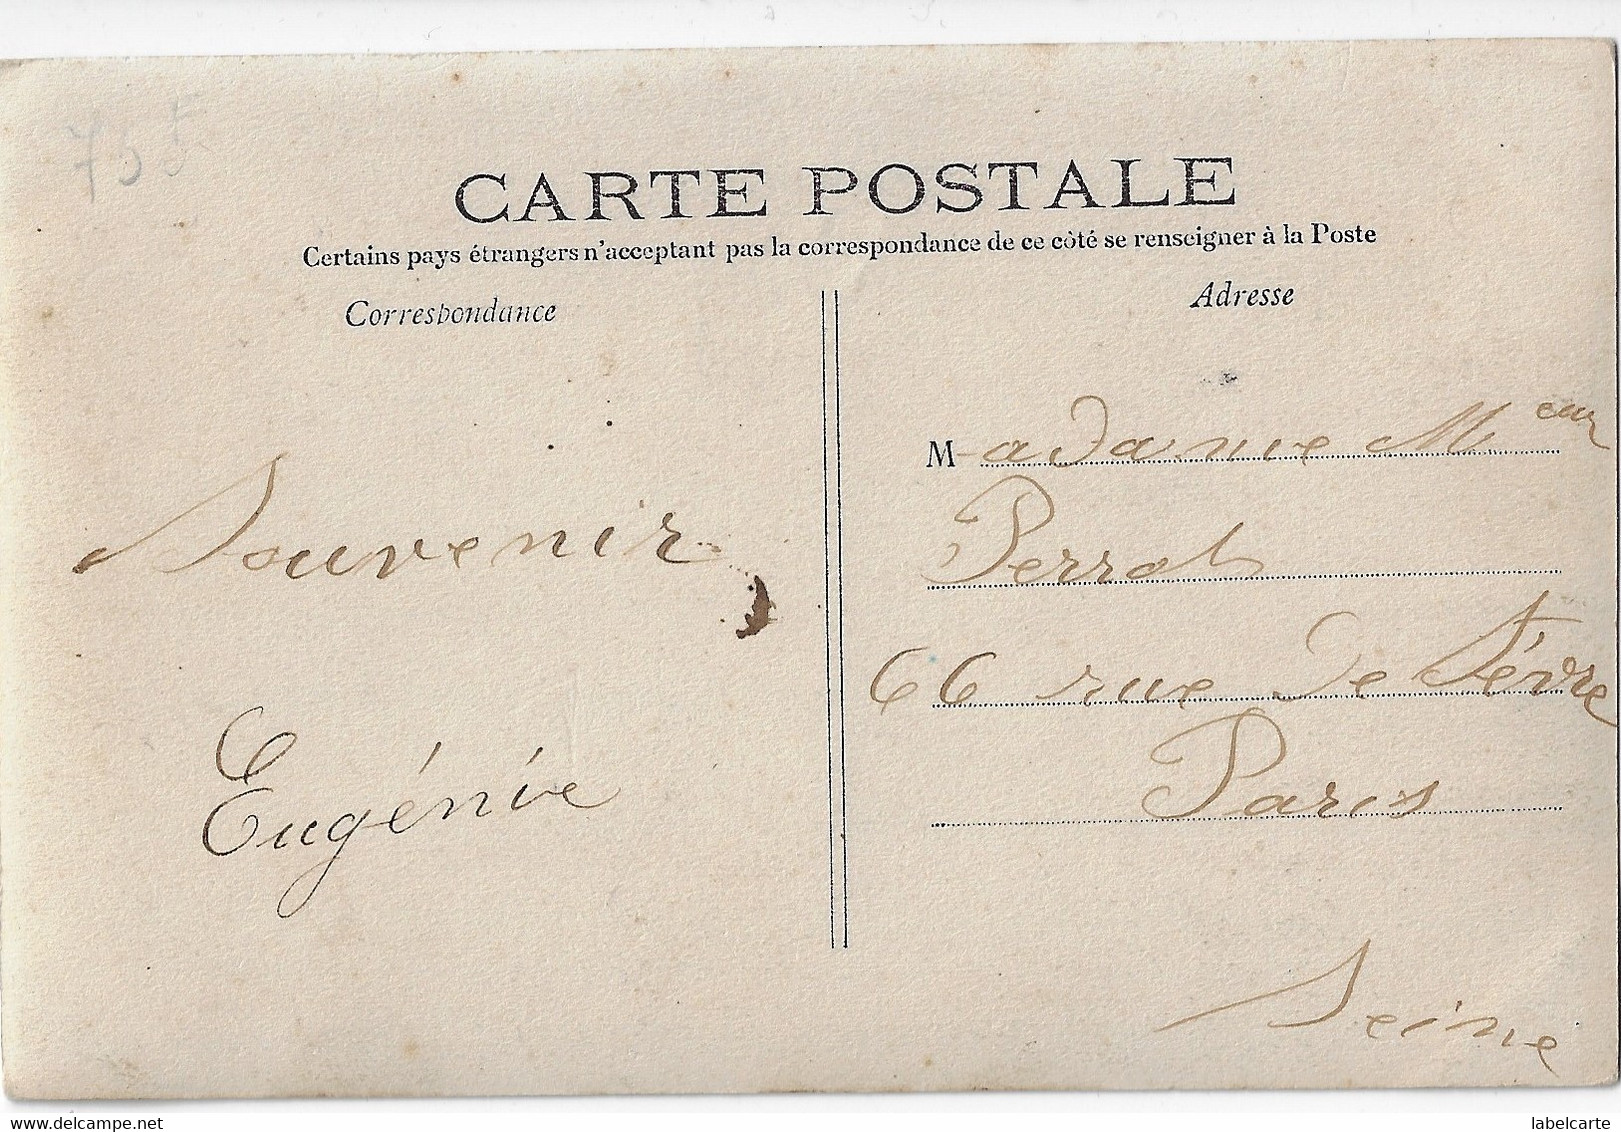 75 F
CARTE POSTALE
Certains pays étrangers n'acceptant pas la correspondance de ce côté se renseigner à la Poste
Correspondance
Adresse
Souvenir
Eugénie
Madame M eur
Perrot
66 rue de Sèvre
Paris
Seine
delcampe.net
labelcarte